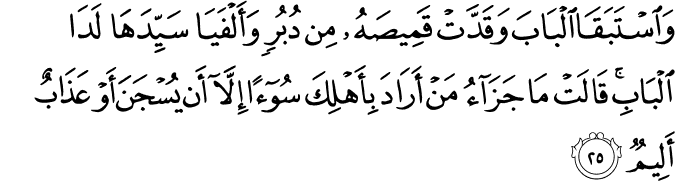 وَٱسْتَبَقَا ٱلْبَابَ وَقَدَّتْ قَمِيصَهُۥ مِن دُبُرٍ وَأَلْفَيَا سَيِّدَهَا لَدَا
ٱلْبَابِ ۚ قَالَتْ مَا جَزَآءُ مَنْ أَرَادَ بِأَهْلِكَ سُوٓءًا إِلَّآ أَن يُسْجَنَ أَوْ عَذَابٌ
أَلِيمٌ ٢٥